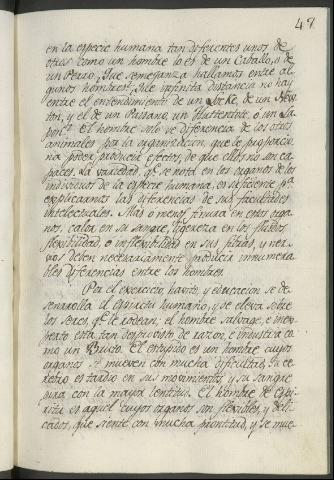 49.
en la especie humana tan diferentes unos de
otros como un hombre lo es de un Caballo, o de
un Perro. Que semejanza hallamos entre al-
gunos hombres? Que infinita distancia no hay
entre el entendimiento de un Locke, de un New-
ton, y el de un Paisano, un Hottentote, o un La-
pon? El hombre solo se diferencia de los otros
animales por la organizacion, que le proporcio-
na poder producir efectos, de que ellos no son ca-
paces. La variedad, qe. se nota en los organos de los
individuos de la especie humana, es suficiente pa.
explicarnos las diferencias de sus facultades
intelectuales. Mas o menos finura en estos orga-
nos, calor en su sangre, ligereza en los fluidos,
flexibilidad, o inflexibilidad en sus fibras, y ner-
vios deben necesariamente producir innumera-
bles diferencias entre los hombres.
Por el exercicio, havito, y educacion se de-
senarrolla el espiritu humano, y se eleva sobre
los seres, qe. le rodean; el hombre salvage, e inex-
perto esta tan desprovisto de razon, e industria co-
mo un Bruto. El estupido es un hombre cuyos
organos se mueven con mucha dificultad, su ce-
rebro es tardio en sus movimientos, y su sangre
gira con la mayor lentitud. El hombre de espi-
ritu es aquel cuyos organos son flexibles, y deli-
cados, que siente con mucha prontitud, y se mue-